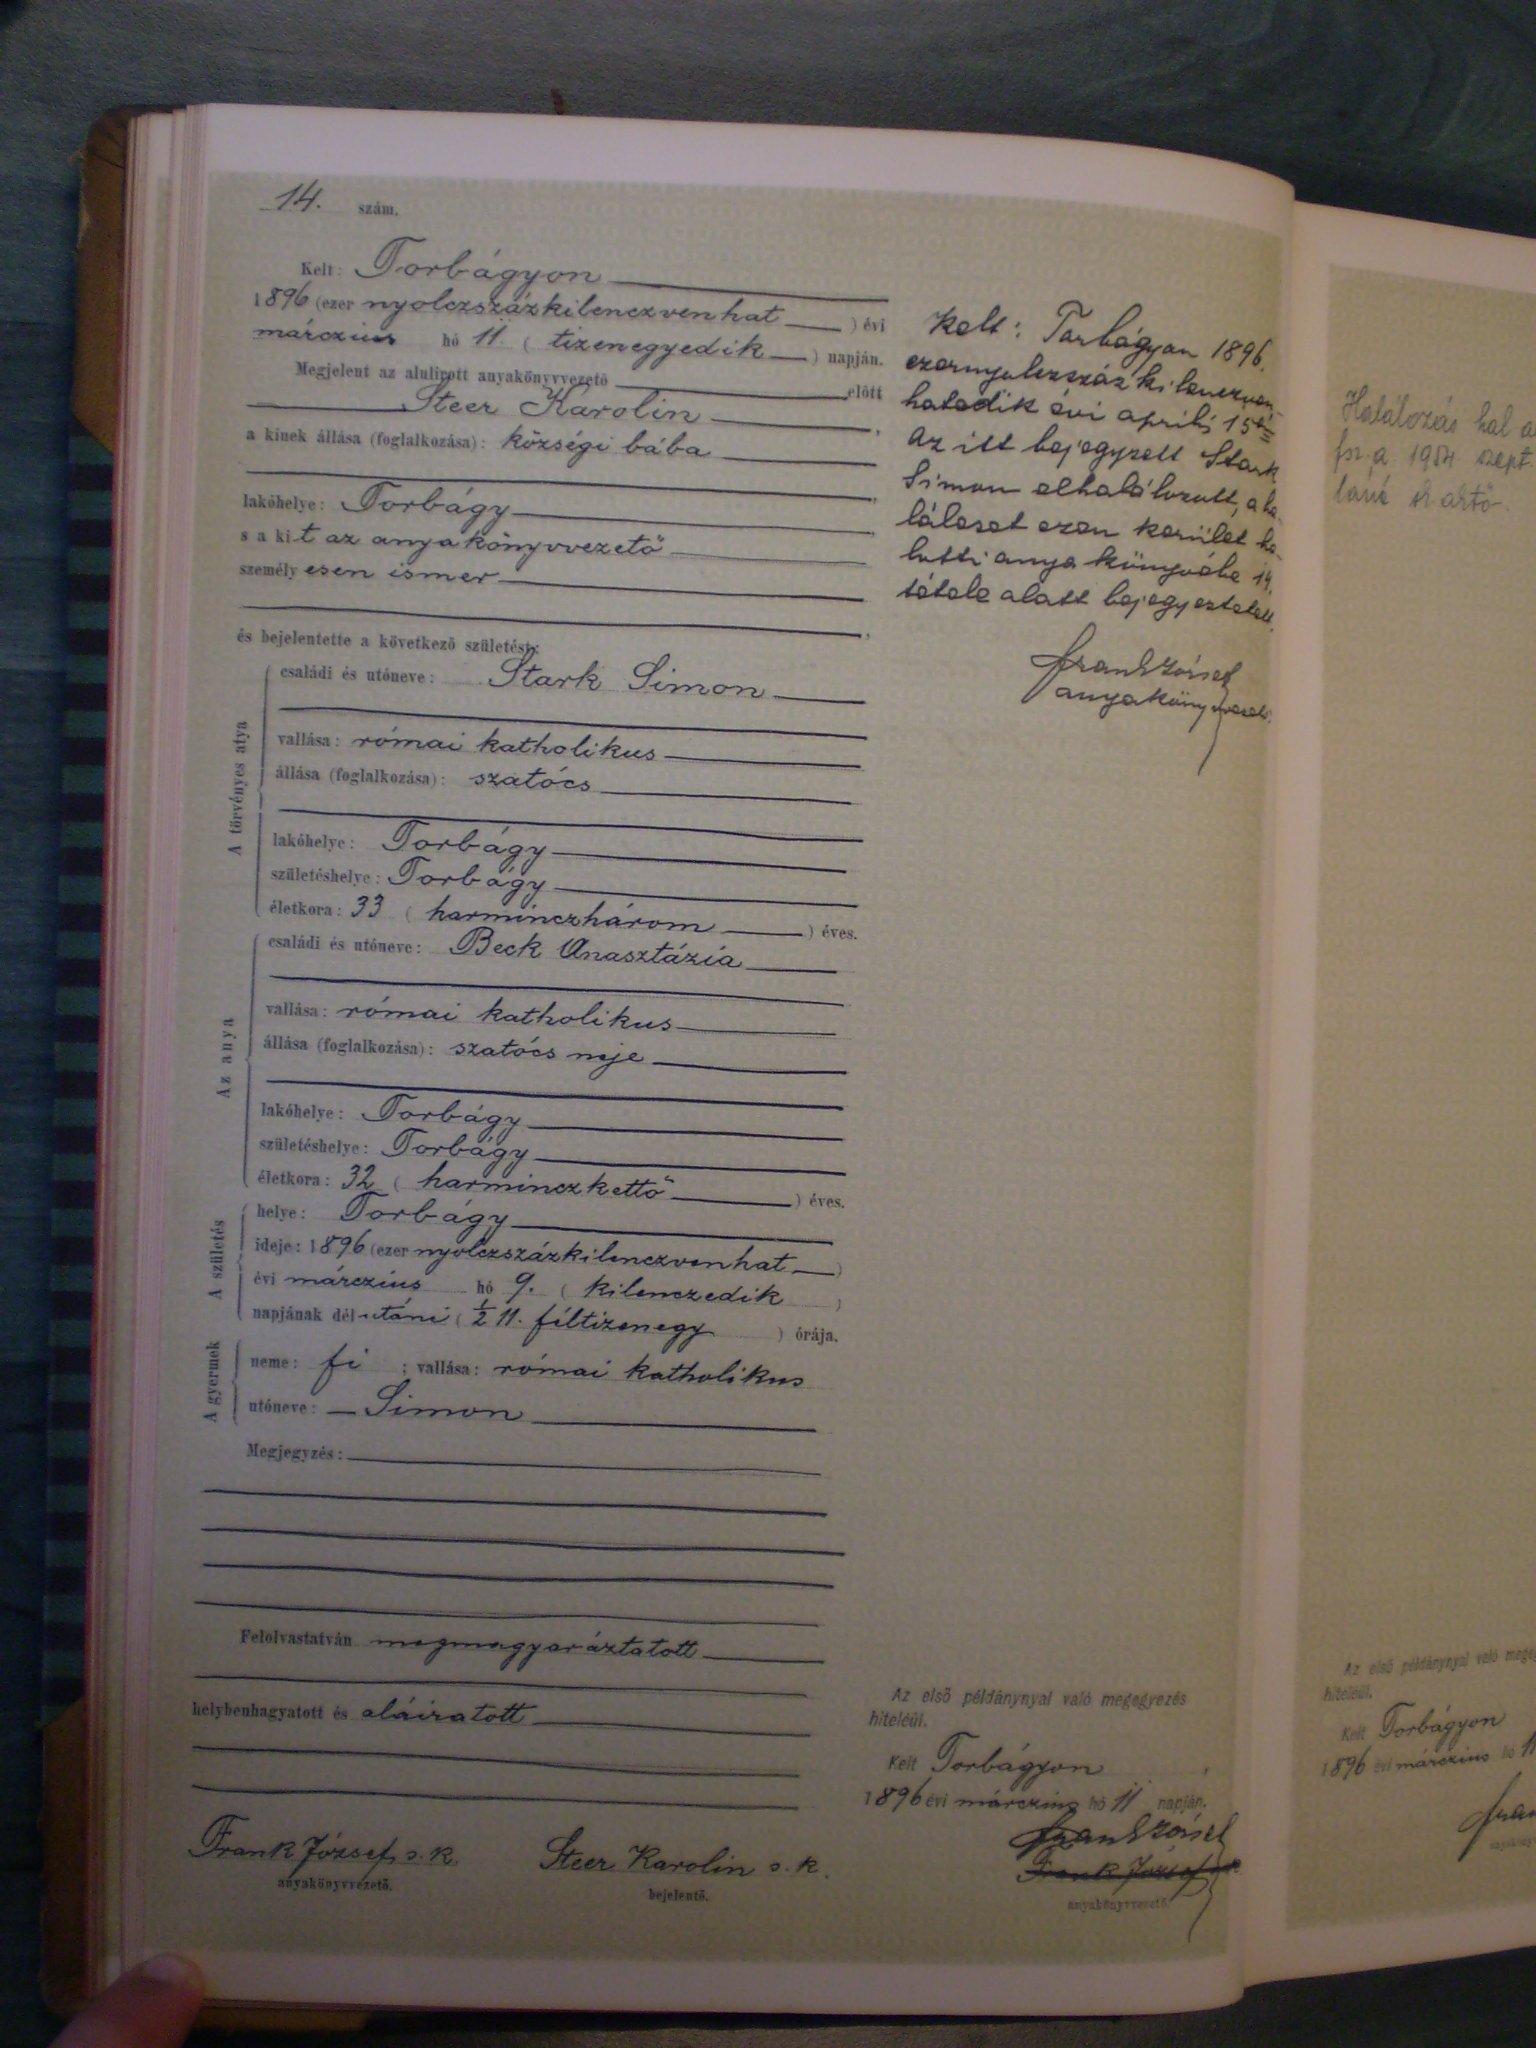 14. szám.
Kelt: Torbágyon
1896 (ezer nyolczszázkilenczvenhat ) évi
márczius hó 11. ( tizenegyedik ) napján.
Megjelent az alulirott anyakönyvvezető előtt
Steer Karolin ,
a kinek állása (foglalkozása): községi bába
,
lakóhelye: Torbágy ,
s a kit az anyakönyvvezető
személyesen ismer
,
és bejelentette a következő születést:
A törvényes atya
családi és utóneve: Stark Simon
vallása: római katholikus
állása (foglalkozása): szatócs
lakóhelye: Torbágy
születéshelye: Torbágy
életkora: 33 ( harminczhárom ) éves.
Az anya
családi és utóneve: Beck Anasztázia
vallása: római katholikus
állása (foglalkozása): szatócs neje
lakóhelye: Torbágy
születéshelye: Torbágy
életkora: 32 ( harminczkettő ) éves.
A születés
helye: Torbágy
ideje: 1896 (ezer nyolczszázkilenczvenhat )
évi márczius hó 9. ( kilenczedik )
napjának délutáni ( ½ 11. féltizenegy ) órája.
A gyermek
neme: fi ; vallása: római katholikus
utóneve: Simon
Megjegyzés:
Felolvastatván megmagyaráztatott
helybenhagyatott és aláiratott
Frank József s. k.
anyakönyvvezető.
Steer Karolin s. k.
bejelentő.
Kelt: Torbágyon 1896.
ezernyolczszázkilenczven-
hatodik évi április 15én
Az itt bejegyzett Stark
Simon elhalálozott, a ha-
láleset ezen kerület ha-
lotti anyakönyvébe 14.
tétele alatt bejegyeztetett.
Frank József
anyakönyvvezető.
Az első példánynyal való megegyezés
hiteléül.
Kelt Torbágyon ,
1896 évi márczius hó 11 napján.
Frank József
Frank József
anyakönyvvezető.
Halálozás hal. a
1984 szept.
Az első példánynyal való
hiteléül.
Kelt Torbágyon
1896 évi márczius hó 11